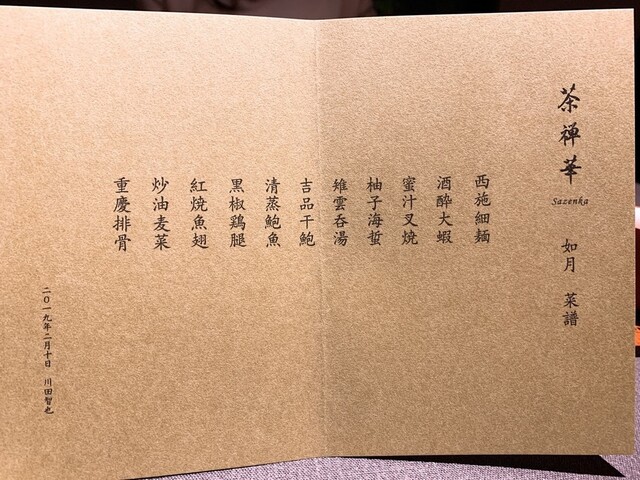 茶禅華
Sazenka
如月 菜譜
西施細麺
酒酔大蝦
蜜汁叉焼
柚子海蜇
雉雲呑湯
吉品干鮑
清蒸鮑魚
黒椒鶏腿
紅焼魚翅
炒油麦菜
重慶排骨
二〇一九年二月十日 川田智也